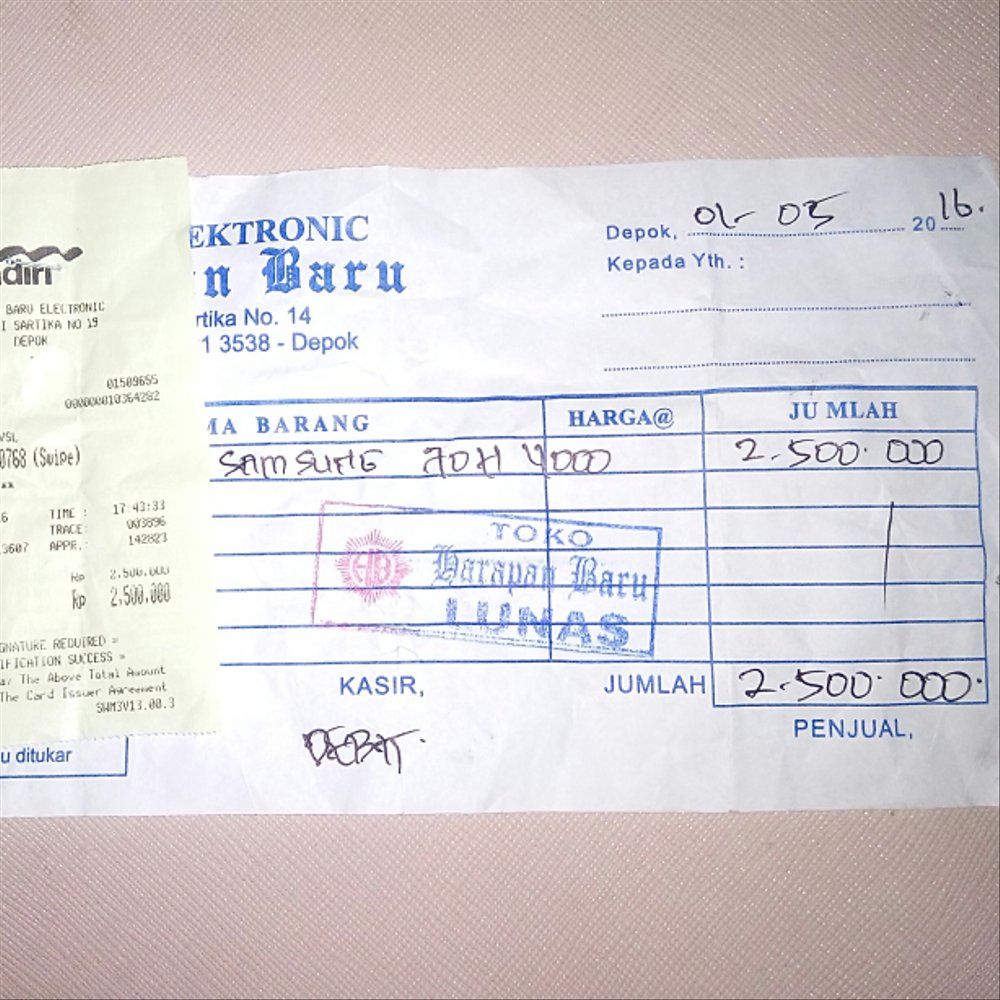 diri
BARU ELECTRONIC
I SARTIKA NO 19
DEPOK
01509655
000000010364282
VSL
0768 (Swipe)
**
6 TIME : 17:43:33
TRACE: 003896
3607 APPR.: 142823
Rp 2.500.000
Rp 2,500.000
GNATURE REQUIRED =
IFICATION SUCCESS =
ay The Above Total Amount
The Card Issuer Agreement
SWM3V13.00.3
EKTRONIC
n Baru
rtika No. 14
1 3538 - Depok
Depok, 01- 05 2016.
Kepada Yth. :
MA BARANG HARGA@ JUMLAH
SAMSUNG 40H 4000 2.500.000
TOKO
HB Harapan Baru
LUNAS
KASIR, JUMLAH 2.500.000.
DEBET. PENJUAL,
u ditukar